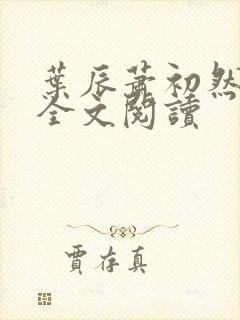 葉辰蕭初然
全文閱讀
賈存真